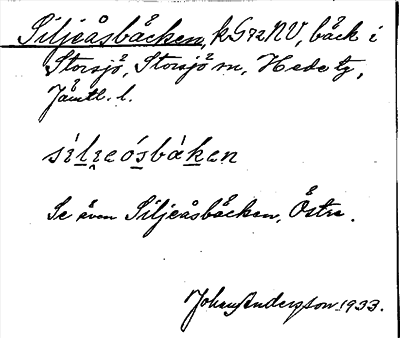 Siljeåsbäcken, kG72NV, bäck i
Storsjö, Storsjö sn, Hede tg,
Jämtl. l.
sìli̯eósbàken
Se även Siljeåsbäcken, Östra.
Johan Anderzson 1933.